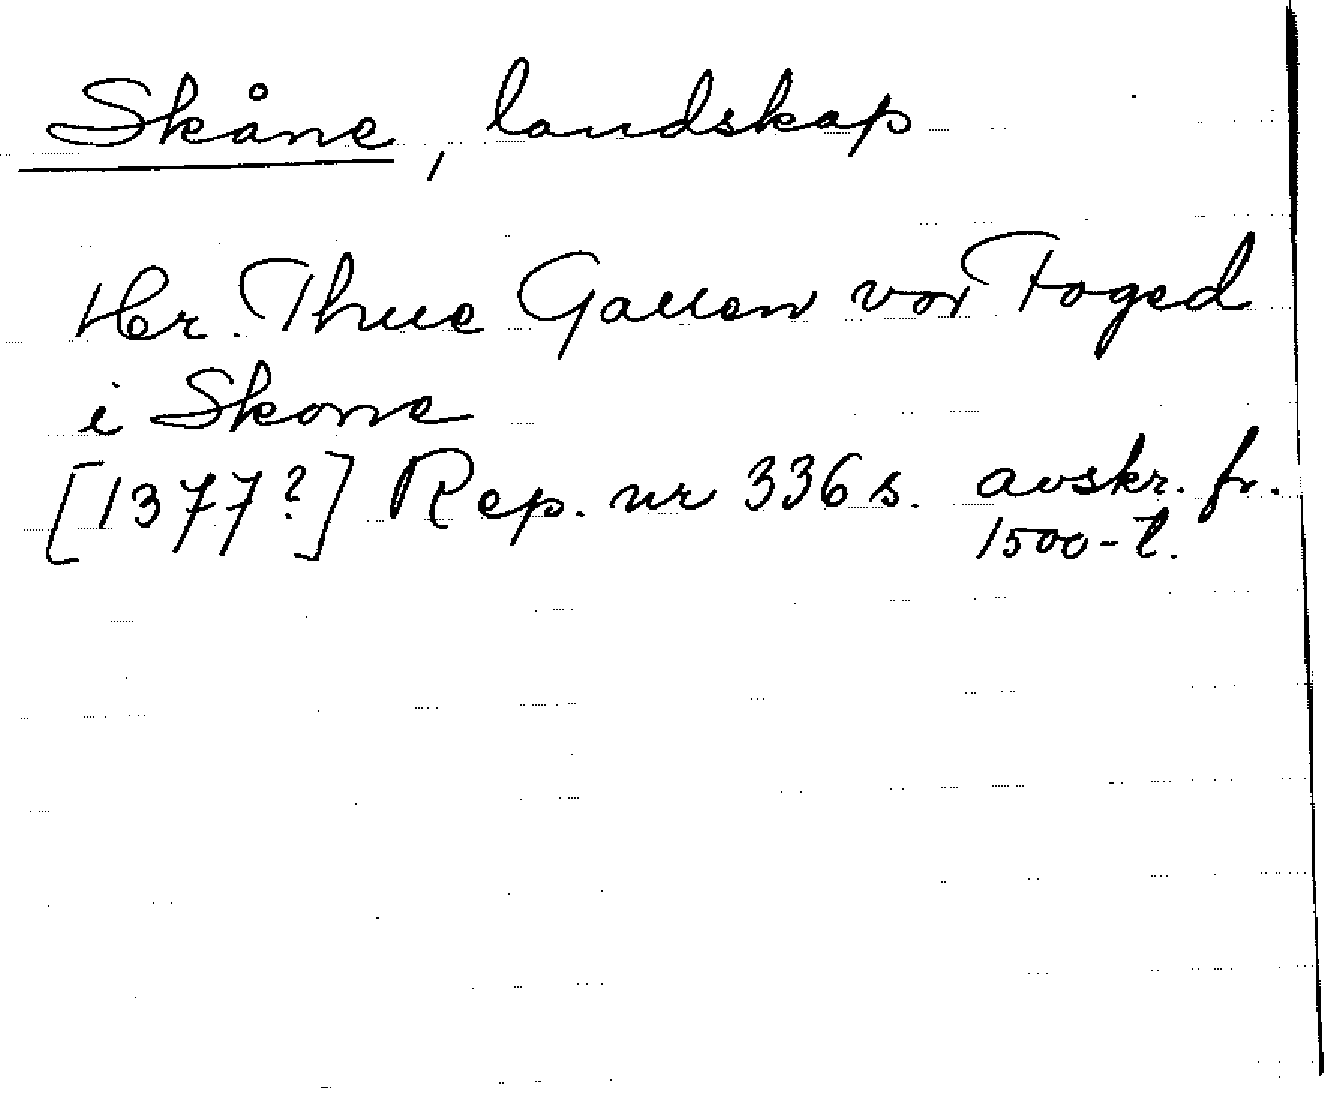 Skåne, landskap
Hr. Thue Gallen vor Foged
i Skone
[1377?] Rep. nr 336 s. avskr. fr.
1500-t.